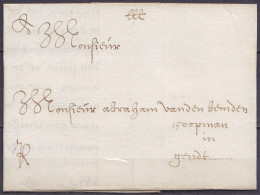 Monsieur
Monsieur abraham vanden bemden
coopman
in
gendt